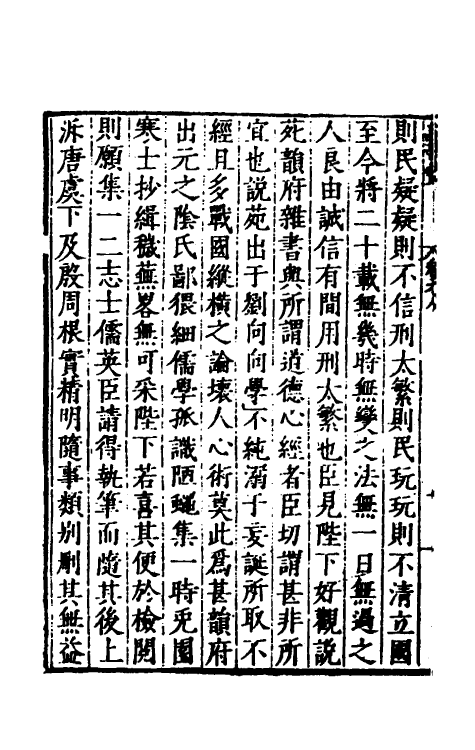 則民疑疑則不信刑太繁則民玩玩則不清立國
至今將二十載無幾時無變之法無一日無過之
人良由誠信有間用刑太繁也臣見陛下好觀說
苑韻府雜書與所謂道德心經者臣切謂甚非所
宜也說苑出于劉向向學不純溺于妄誕所取不
經且多戰國縱橫之論壞人心術莫此爲甚韻府
出元之陰氏鄙猥細儒學孤識陋蠅集一時兎園
寒士抄緝穢蕪畧無可采陛下若喜其便於檢閱
則願集一二志士儒英臣請得執筆而隨其後上
泝唐虞下及殷周根實精明隨事類别刪其無益